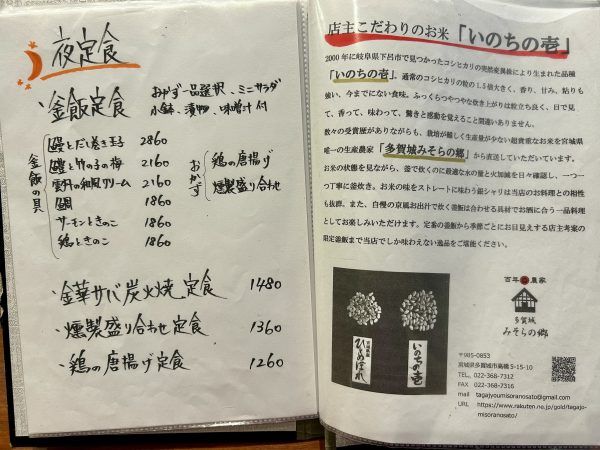 夜定食
・釜飯定食
おかず一品選択、ミニサラダ
小鉢、漬物、味噌汁付
釜飯の具
鰻とだし巻き玉子 2860
鱧と竹の子の梅 2160
雲丹の和風クリーム 2160
鯛 1860
サーモンときのこ 1860
鶏ときのこ 1860
おかず
鶏の唐揚げ
燻製盛り合わせ
・金華サバ炭火焼定食 1480
・燻製盛り合わせ定食 1360
・鶏の唐揚げ定食 1260
店主こだわりのお米「いのちの壱」
2000年に岐阜県下呂市で見つかったコシヒカリの突然変異株により生まれた品種
「いのちの壱」。通常のコシヒカリの粒の1.5倍大きく、香り、甘み、粘りも
強い、今までにない食味。ふっくらつやつやな炊き上がりは粒立ち良く、目で見
て、香って、味わって、驚きと感動を覚えること間違いありません。
数々の受賞歴がありながらも、栽培が難しく生産量が少ない超貴重なお米を宮城県
唯一の生産農家「多賀城みそらの郷」から直送していただいています。
お米の状態を見ながら、釜で炊くのに最適な水の量と火加減を日々確認し、一つ一
つ丁寧に釜炊き。お米の味をストレートに味わう銀シャリは当店のお料理との相性
も抜群。また、自慢の和風お出汁で炊く釜飯は合わせる具材でお酒に合う一品料理
としてお楽しみいただけます。定番の釜飯から季節ごとにお目見えする店主考案の
限定釜飯まで当店でしか味わえない逸品をご堪能ください。
宮城県産
ひとめぼれ
いのちの壱
百年農家
多賀城
みそらの郷
〒985-0853
宮城県多賀城市高橋5-15-10
TEL. 022-368-7312
FAX 022-368-7316
mail tagajyoumisoranosato@gmail.com
URL https://www.rakuten.ne.jp/gold/tagajo-
misoranosato/